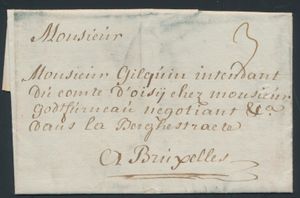 Monsieur
3
Monsieur Gilquin intendant
du comte d'oisij chez monsieur
godtfurneau negotiant &ca
dans la Berghestraete
A Bruxelles